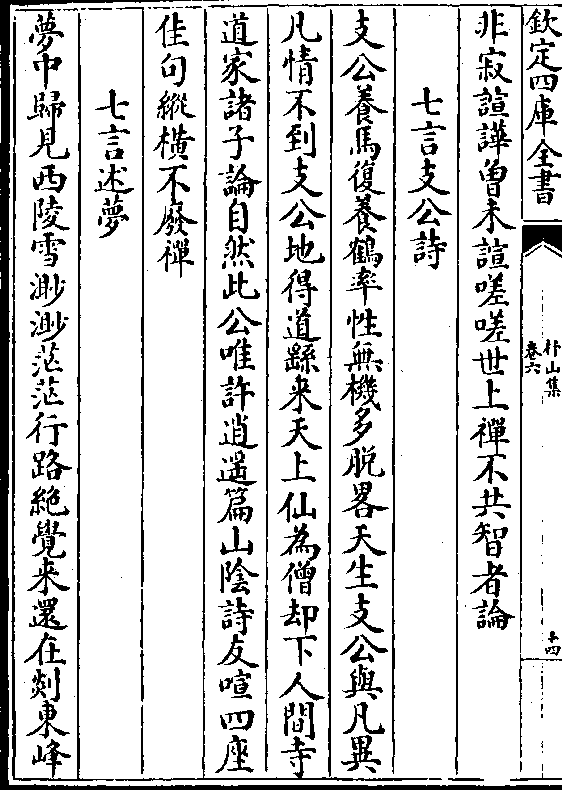 欽定四庫全書
杼山集
卷六
十四
非寂諠譁曽未諠嗟嗟世上禪不共智者論
七言支公詩
支公養馬復養鶴率性無機多脱畧天生支公與凡異
凡情不到支公地得道繇来天上仙為僧却下人間寺
道家諸子論自然此公唯許逍遥篇山陰詩友喧四座
佳句縱横不廢禪
七言述夢
夢中歸見西陵雪渺渺茫茫行路絶覺来還在剡東峰